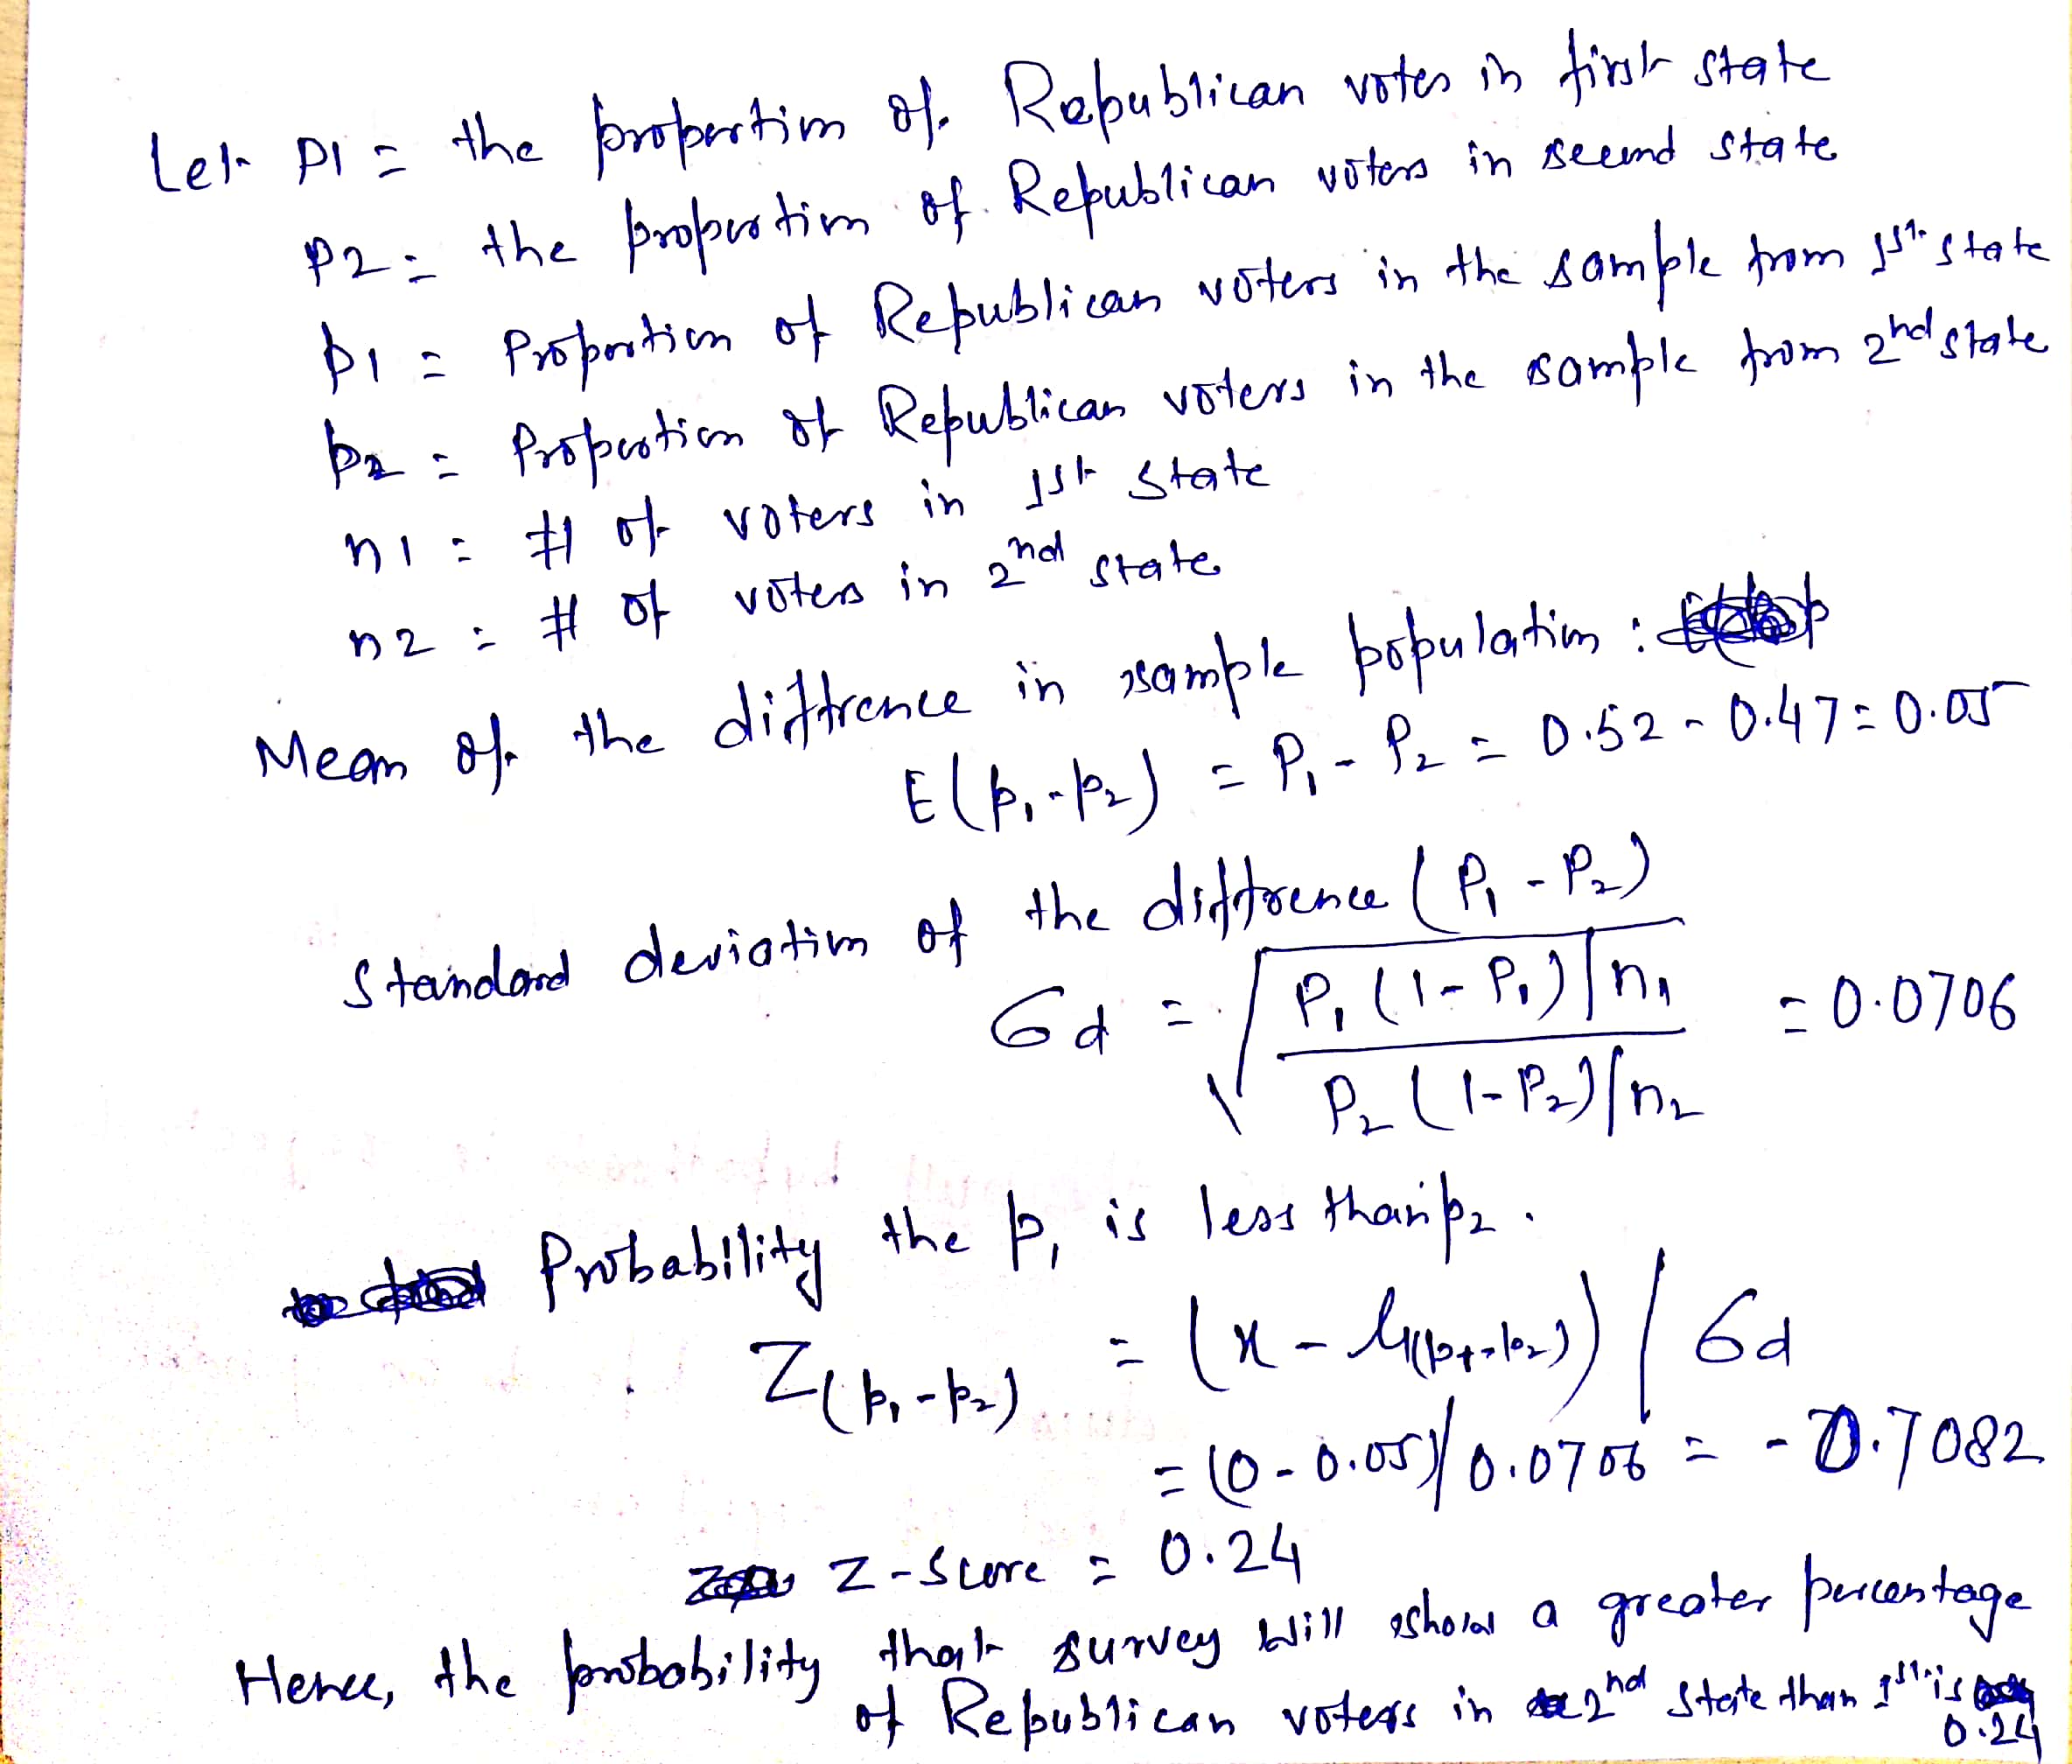 Let P1 = the proportion of Republican votes in first state
P2 = the proportion of Republican voters in second state
p1 = Proportion of Republican voters in the sample from 1st state
p2 = Proportion of Republican voters in the sample from 2nd state
n1 = # of voters in 1st state
n2 = # of voters in 2nd state
Mean of the diffrence in sample population :
E(p₁-p₂) = P₁ - P₂ = 0.52 - 0.47 = 0.05
Standard deviation of the diffrence (P₁ - P₂)
σd = √ P₁(1-P₁)/n₁ / P₂(1-P₂)/n₂ = 0.0706
Probability the p₁ is less than p₂.
Z(p₁-p₂) = (x - μ(p₁-p₂)) / σd
= (0 - 0.05)/0.0706 = -0.7082
Z-score = 0.24
Hence, the probability that survey will show a greater percentage
of Republican voters in 2nd state than 1st is
0.24